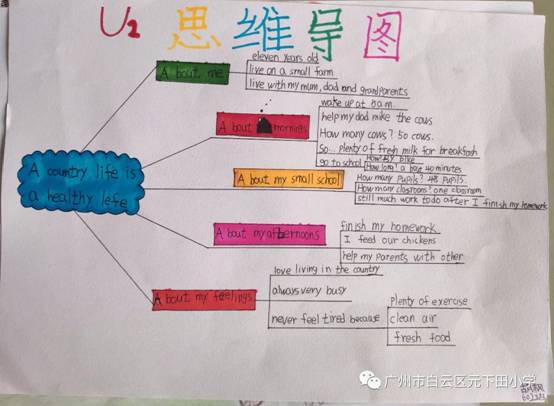 U2 思维导图
A bout me
eleven years old
live on a small farm
live with my mum, dad and grandparents
A bout mornings
wake up at
help my dad milke the cows
How many cows? 50 cows.
So... plenty of fresh milk for breakfash
go to school
How? By bike
How long? a bout 40 minutes
A country life is
a healthy lefe
A bout my small school
How many pupils? pupils.
How many classrooms? one classroom
still much work to do after I finish my homework
A bout my afternoons
finish my homework
I feed our chickens
help my parents with other
A bout my feelings
love living in the country
always very busy
never feel tired because
plenty of exercise
clean air
fresh food
广州市白云区元下田小学